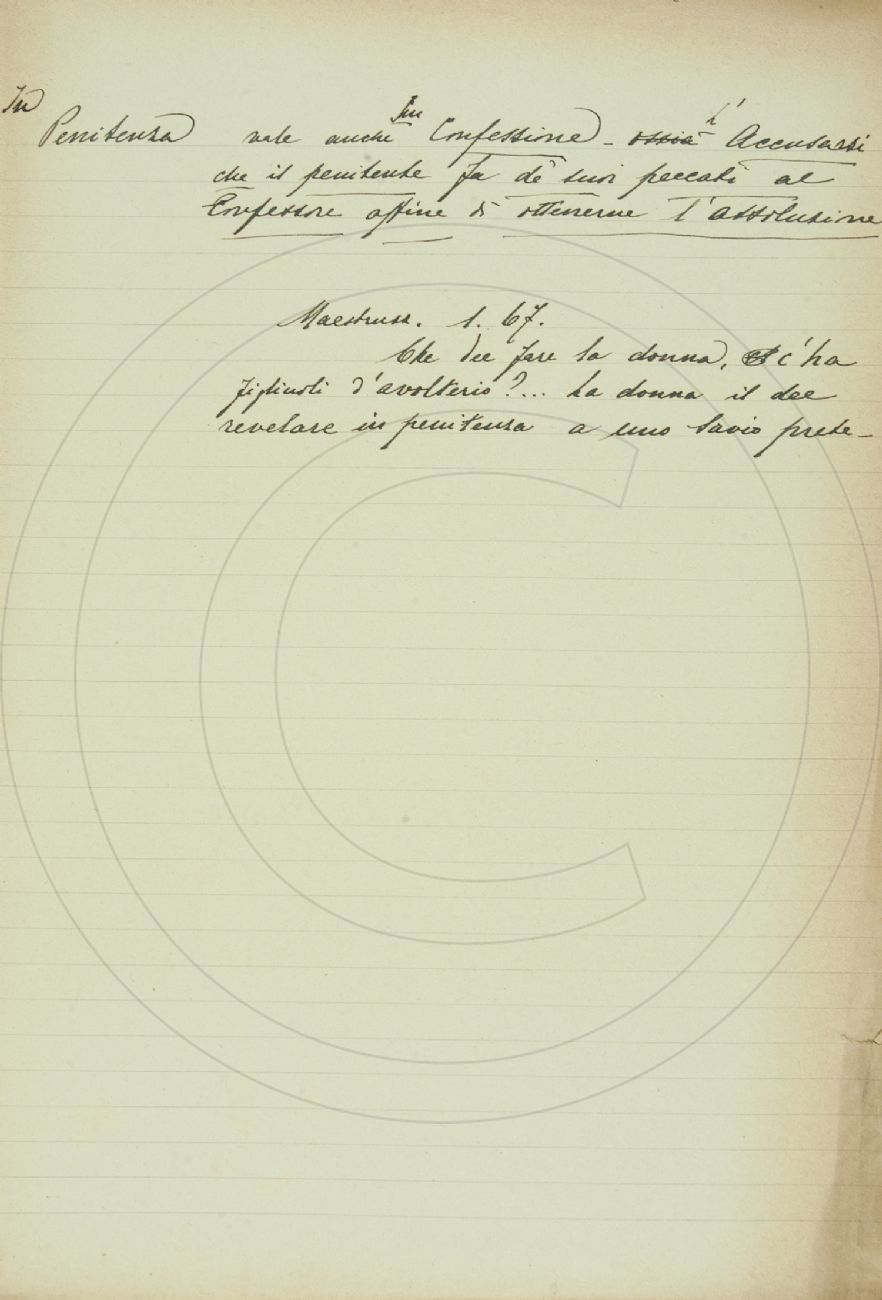 In
Penitenza vale anche In Confessione - ossia l' Accusarsi
che il penitente fa de' suoi peccati al
Confessore affine di ottenerne l'assoluzione
Maestruzz. 1. 67.
Che dee fare la donna, c'ha
figliuoli d'avolterio?... La donna il dee
revelare in penitenza a uno savio prete -